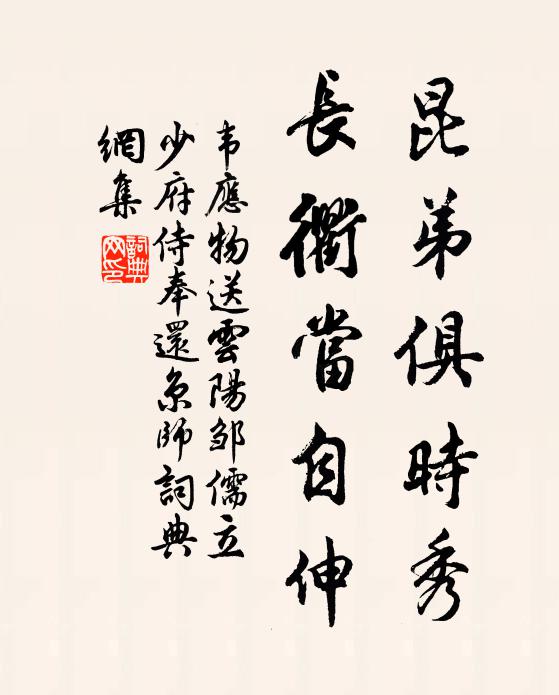 昆弟俱時秀
長衢當自伸
韦應物送雲陽邹儒立
少府侍奉還京師詞典
網集
詞典網印